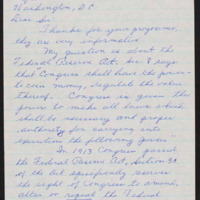 Washington, D.C.
Dear Sir
Thanks for your programs,
they are very informative.
My question is about the
Federal Reserve Act. Sec 8 says
that Congress shall have the power
to coin money, regulate the value
thereof. Congress is given the
power to make all laws which
shall be necessary and proper
authority for carrying into
execution the following powers.
In 1913 Congress passed
the Federal Reserve Act, section 30
of the act specifically reserves
the right of Congress to amend,
alter or repeal the Federal